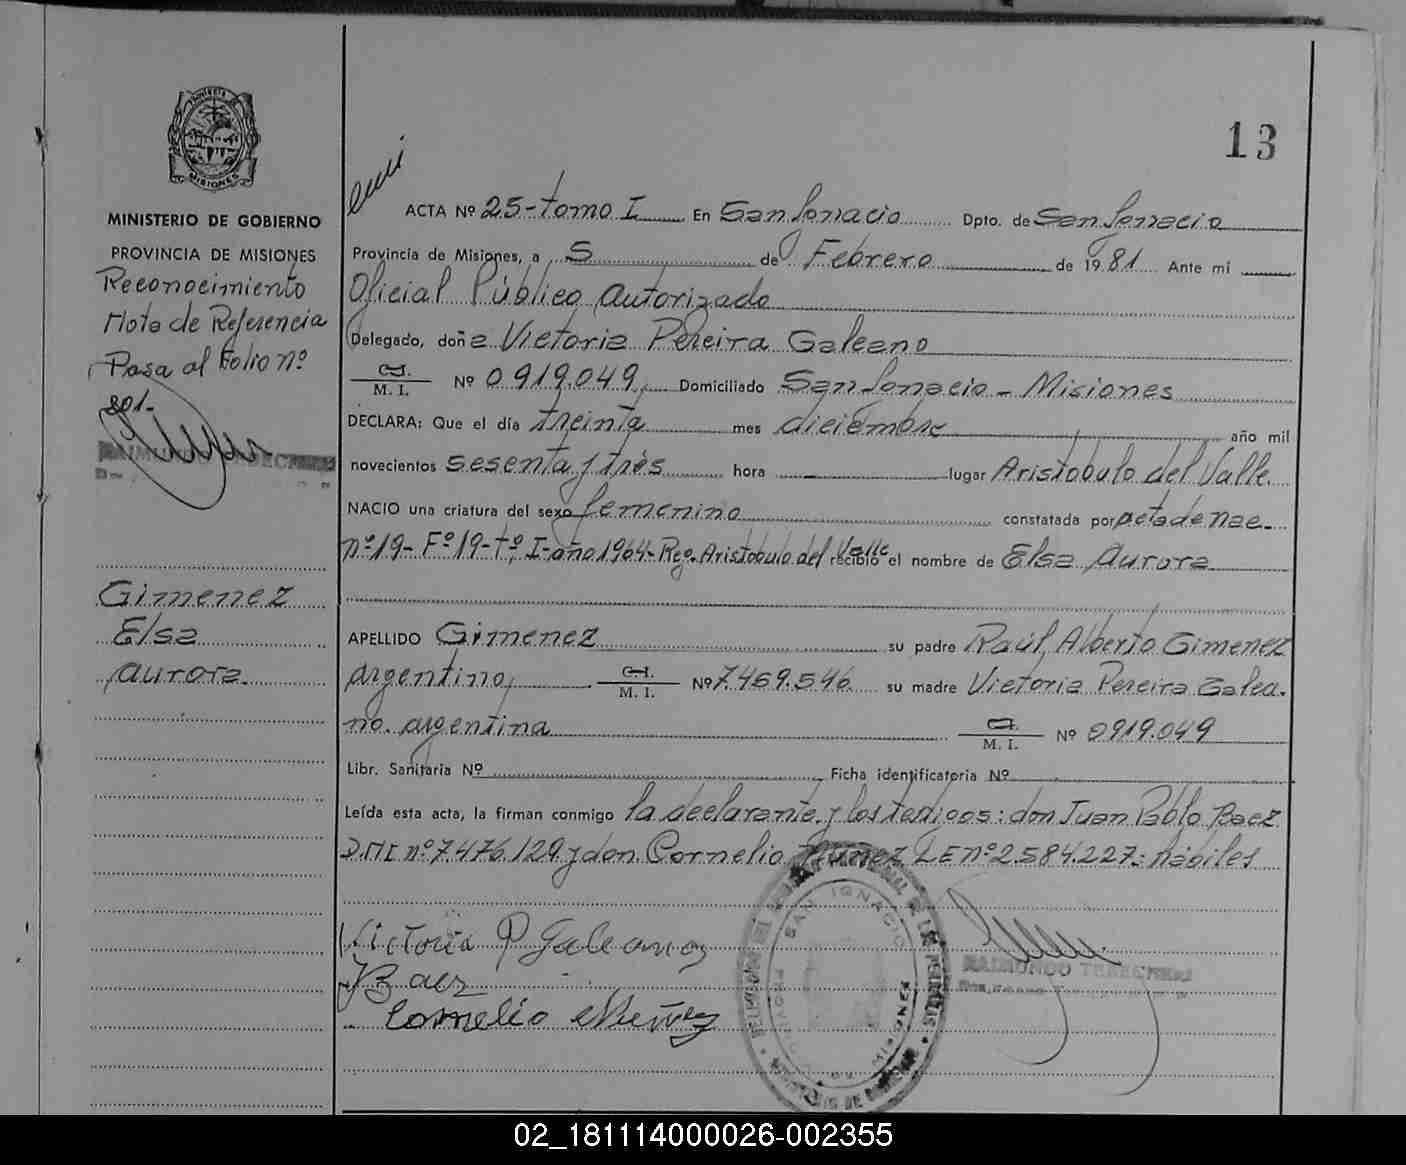 PROVINCIA DE
MISIONES
MINISTERIO DE GOBIERNO
PROVINCIA DE MISIONES
Reconocimiento
Nota de Referencia
Pasa al Folio nº
201-
Gimenez
Elsa
Aurora
13
ACTA Nº 25-tomo I En San Ignacio Dpto. de San Ignacio
Provincia de Misiones, a 5 de Febrero de 1981 Ante mi
Oficial Público autorizado
Delegado, doña Victoria Pereira Galeano
C.I.
M. I. Nº 0919.049, Domiciliado San Ignacio - Misiones
DECLARA: Que el día treinta mes diciembre año mil
novecientos sesenta y trés hora lugar Aristobulo del Valle
NACIO una criatura del sexo femenino constatada por acta de nac.
nº19- Fº19-tº I-año 1964-Reg. Aristobulo del Valle recibió el nombre de Elsa Aurora
APELLIDO Gimenez su padre Raúl Alberto Gimenez
argentino, C.I. M. I. Nº 7.469.546 su madre Victoria Pereira Galea.
no. argentina C.I. M. I. Nº 0919.049
Libr. Sanitaria Nº Ficha identificatoria Nº
Leída esta acta, la firman conmigo la declarante y los testigos: don Juan Pablo Baez
DMI nº 7.476.129 y don Cornelio Nuñez LE nº 2.584.227: hábiles
Victoria P Galeano
JBaez
Cornelio Nuñez
SAN IGNACIO
MISIONES
RAIMUNDO
02_181114000026-002355